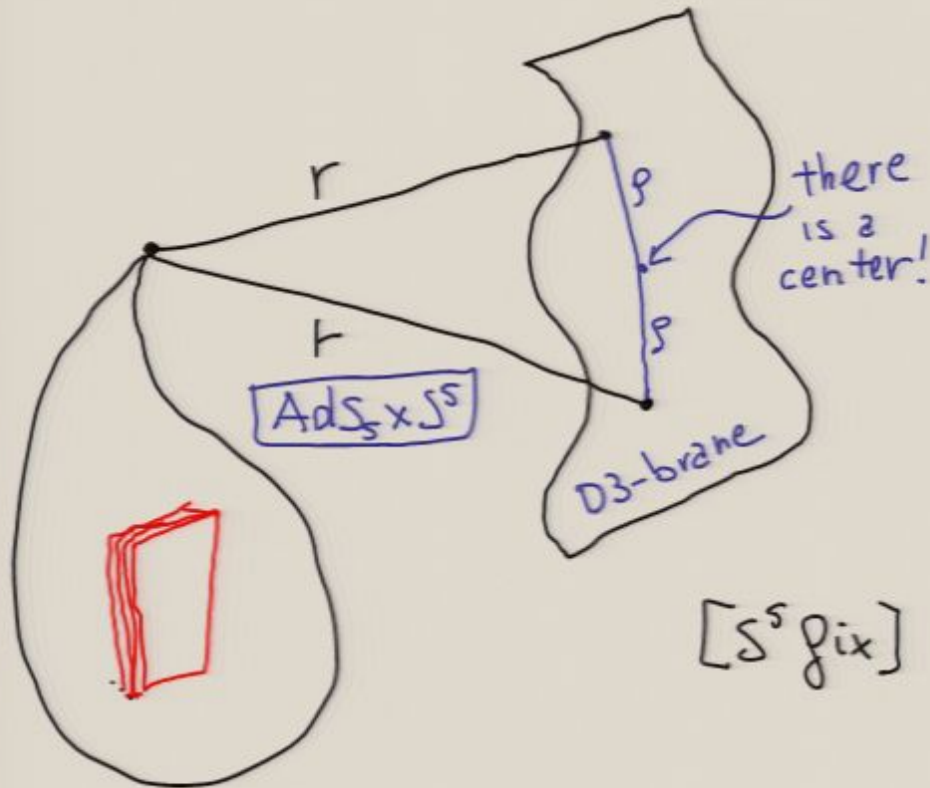 r
ρ
there
is a
center!
ρ
r
AdS₅ x S⁵
D3-brane
[S⁵ fix]